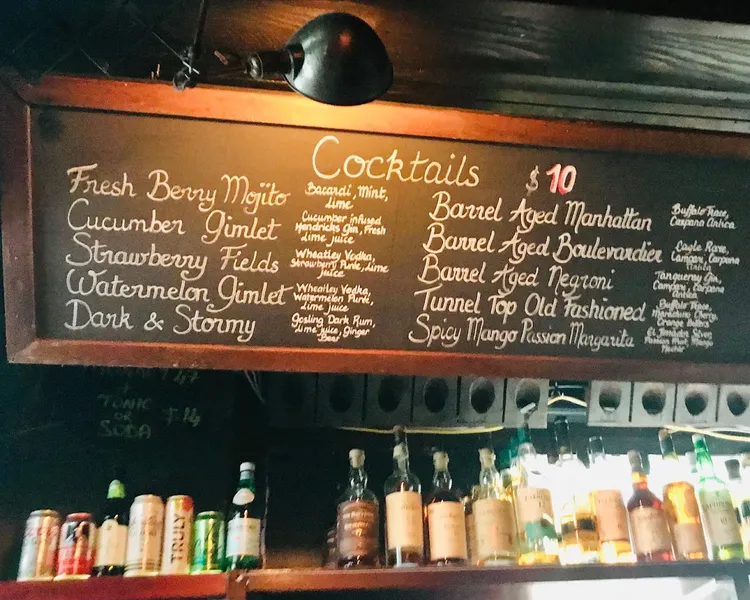 Cocktails $10
Fresh Berry Mojito
Bacardi, Mint,
Lime
Cucumber Gimlet
Cucumber infused
Hendricks Gin, Fresh
Lime juice
Strawberry Fields
Wheatley Vodka,
Strawberry Puree, Lime
Juice
Watermelon Gimlet
Wheatley Vodka,
Watermelon Puree,
Lime juice
Dark & Stormy
Gosling Dark Rum,
Lime juice, Ginger
Beer
Barrel Aged Manhattan
Buffalo Trace,
Carpano Antica
Barrel Aged Boulevardier
Eagle Rare,
Campari, Carpano
Antica
Barrel Aged Negroni
Tanqueray Gin,
Campari, Carpano
Antica
Tunnel Top Old Fashioned
Buffalo Trace,
Maraschino Cherry,
Orange Bitters
Spicy Mango Passion Margarita
Silver
Passion Fruit, Mango
TONIC
OR
SODA
TRULY